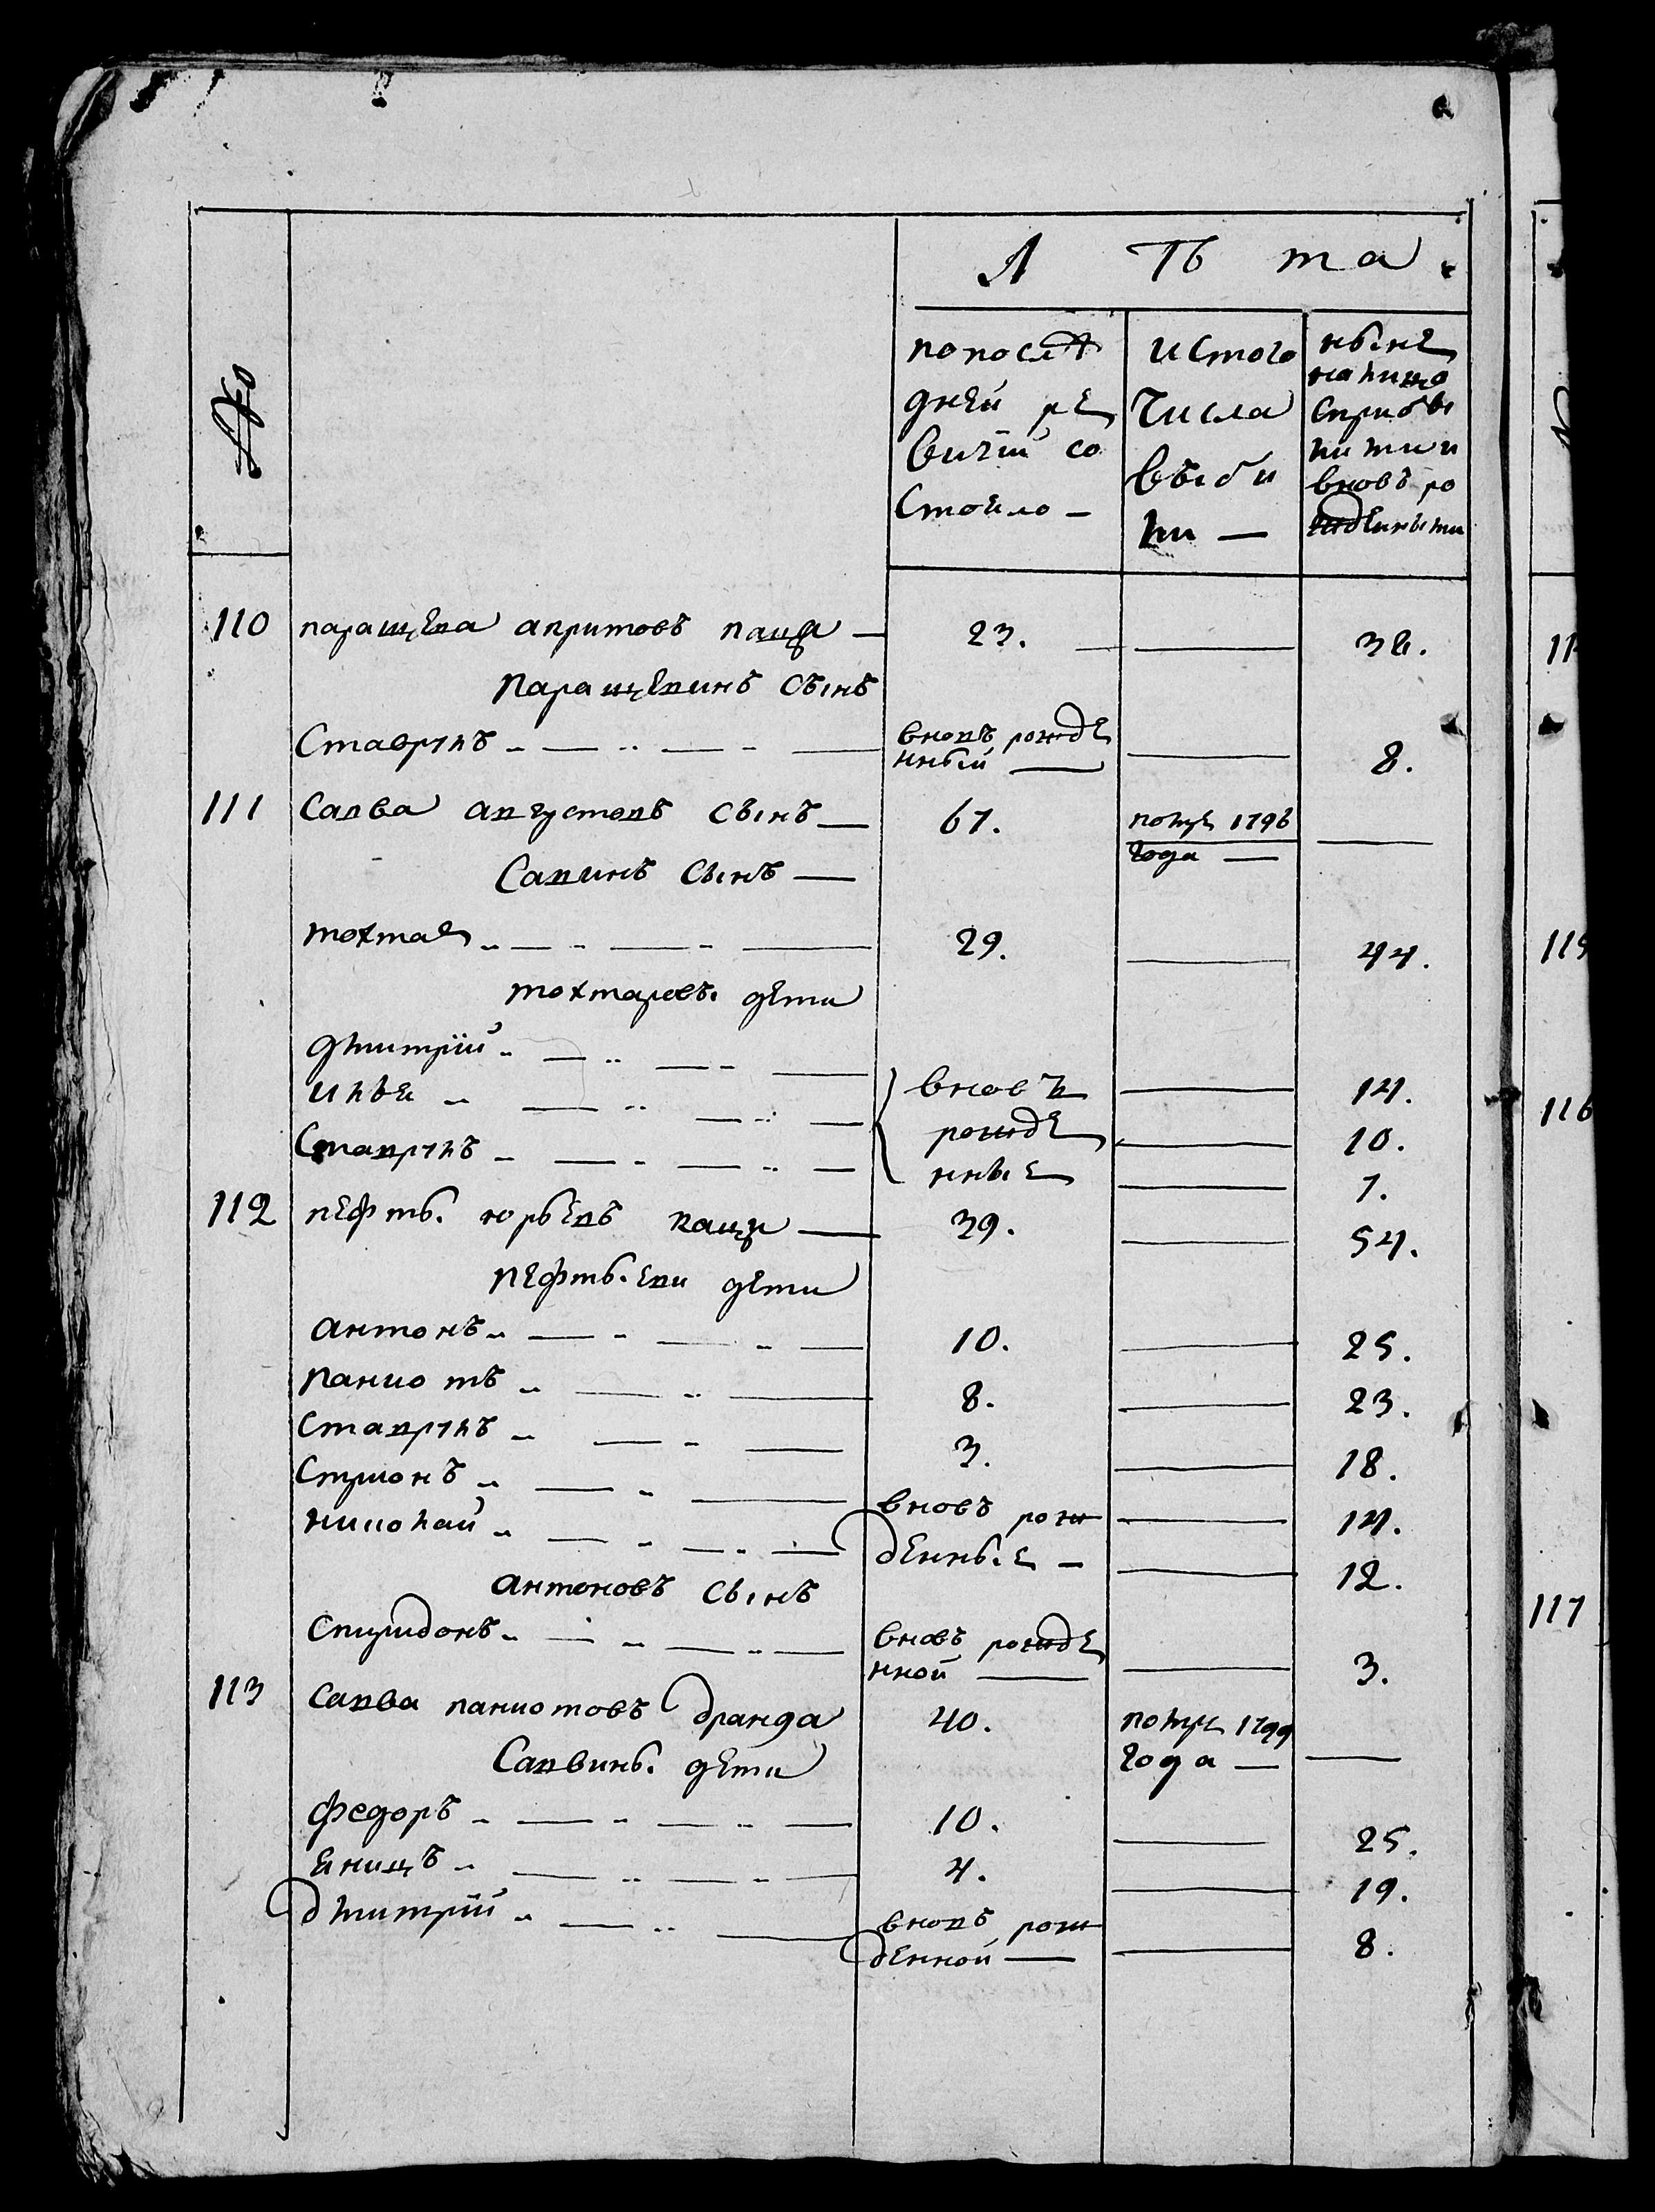 Лѣта.
№
по послѣ
дней ре
визiи со
стояло —
ис того
числа
выбы
ли —
ныне
налицо
сприбы
лыми и
вновь ро
жденными
110 паращева апритовъ паца — 23. — 38.
Паращевинъ сынъ
Ставрiнъ — вновь рожде
нный — 8.
111 Савва августовъ сынъ — 67. помре 1796
года —
Савинъ сынъ —
тохтар — 29. — 44.
тохтаровы дети
дмитрiй — 14.
илья — вновь
рожде
нные — 10.
Ставрiнъ — 7.
112 пефты юрьевъ паца — 39. — 54.
пефтыеви дети
антонъ — 10. — 25.
паниотъ — 8. — 23.
Ставрiнъ — 3. — 18.
Стрионъ — вновь рож
денные — 14.
николай — 12.
антоновъ сынъ
спиридонъ — вновь рожде
нной — 3.
113 савва паниотовъ дранда 40. помре 1799
года —
Саввины дети
федоръ — 10. — 25.
яницъ — 4. — 19.
дмитрiй — вновь рож
денной — 8.
115
116
117